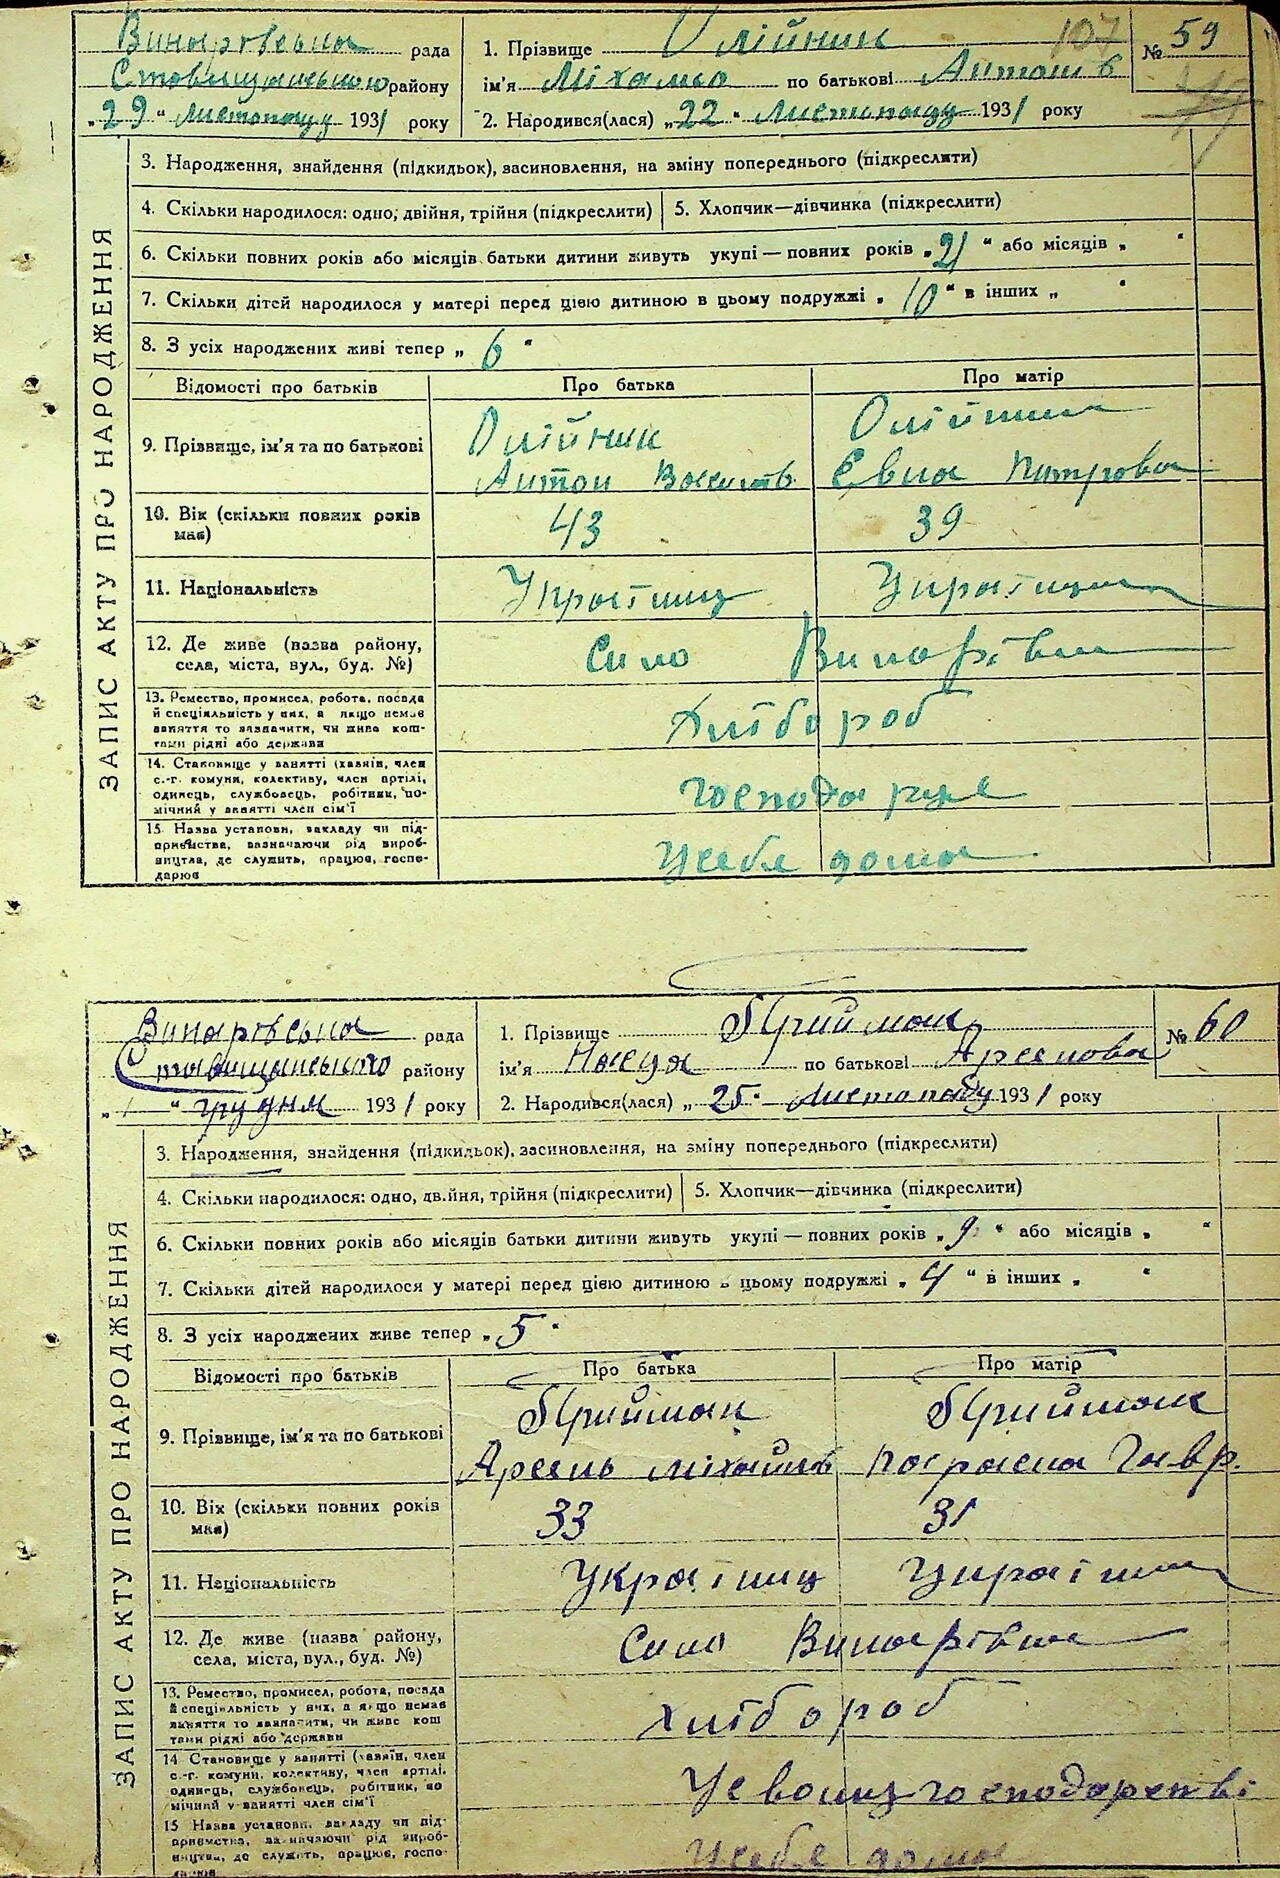 Винарівська рада
Ставищанського району
„29“ листопаду 1931 року
1. Прізвище Олійник
ім'я Міхалько по батькові Антонів
2. Народився(лася) „22“ листопаду 1931 року
107
№ 59
ЗАПИС АКТУ ПРО НАРОДЖЕННЯ
3. Народження, знайдення (підкидьок), засиновлення, на зміну попереднього (підкреслити)
4. Скільки народилося: одно, двійня, трійня (підкреслити) 5. Хлопчик—дівчинка (підкреслити)
6. Скільки повних років або місяців батьки дитини живуть укупі — повних років „21“ або місяців „ “
7. Скільки дітей народилося у матері перед цією дитиною в цьому подружжі „10“ в інших „ “
8. З усіх народжених живі тепер „6“
Відомості про батьків Про батька Про матір
9. Прізвище, ім'я та по батькові
Олійник Олійник
Антон Василів Євга Петровна
10. Вік (скільки повних років має) 43 39
11. Національність Україниц Україниця
12. Де живе (назва району, села, міста, вул., буд. №) Село Винарівка
13. Ремество, промисел, робота, посада й спеціяльність у них, а якщо немає заняття то зазначити, чи живе коштами рідні або держави
Хлібороб
14. Становище у занятті (хазяїн, член с.-г. комуни, колективу, член артілі, одинець, службовець, робітник, помічний у занятті член сім'ї
Господарує
15. Назва установи, закладу чи підприємства, зазначаючи рід виробництва, де служить, працює, господарює
Усебе дома
Винарівська рада
Ставищанського району
„1“ грудня 1931 року
1. Прізвище Приймак
ім'я Настя по батькові Арсенова
2. Народився(лася) „25“ листопаду 1931 року
№ 60
ЗАПИС АКТУ ПРО НАРОДЖЕННЯ
3. Народження, знайдення (підкидьок), засиновлення, на зміну попереднього (підкреслити)
4. Скільки народилося: одно, двійня, трійня (підкреслити) 5. Хлопчик—дівчинка (підкреслити)
6. Скільки повних років або місяців батьки дитини живуть укупі — повних років „9“ або місяців „ “
7. Скільки дітей народилося у матері перед цією дитиною в цьому подружжі „4“ в інших „ “
8. З усіх народжених живе тепер „5“
Відомості про батьків Про батька Про матір
9. Прізвище, ім'я та по батькові
Приймак Приймак
Арсень Міхайлів Параска Гавр.
10. Вік (скільки повних років має) 33 31
11. Національність Україниц Україниця
12. Де живе (назва району, села, міста, вул., буд. №) Село Винарівка
13. Ремество, промисел, робота, посада й спеціяльність у них, а якщо немає заняття то зазначити, чи живе коштами рідні або держави
хлібороб
14 Становище у занятті (хазяїн, член с.-г. комуни, колективу, член артілі, одинець, службовець, робітник, помічний у занятті член сім'ї
Усвоиму господарстві
15 Назва установи, закладу чи підприємства, зазначаючи рід виробництва, де служить, працює, господарює
Усебе дома